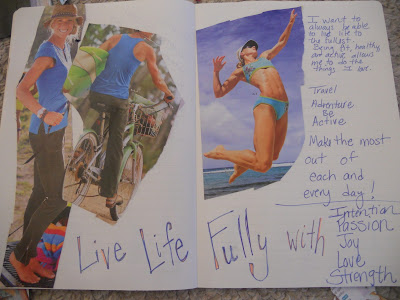 I want to
always be able
to live life to
the fullest.
Being fit, healthy
and active allows
me to do the
things I love.
Travel
Adventure
Be
Active
Make the most
out of
each and
every day!
Live Life Fully With
Intention
Passion
Joy
Love
Strength